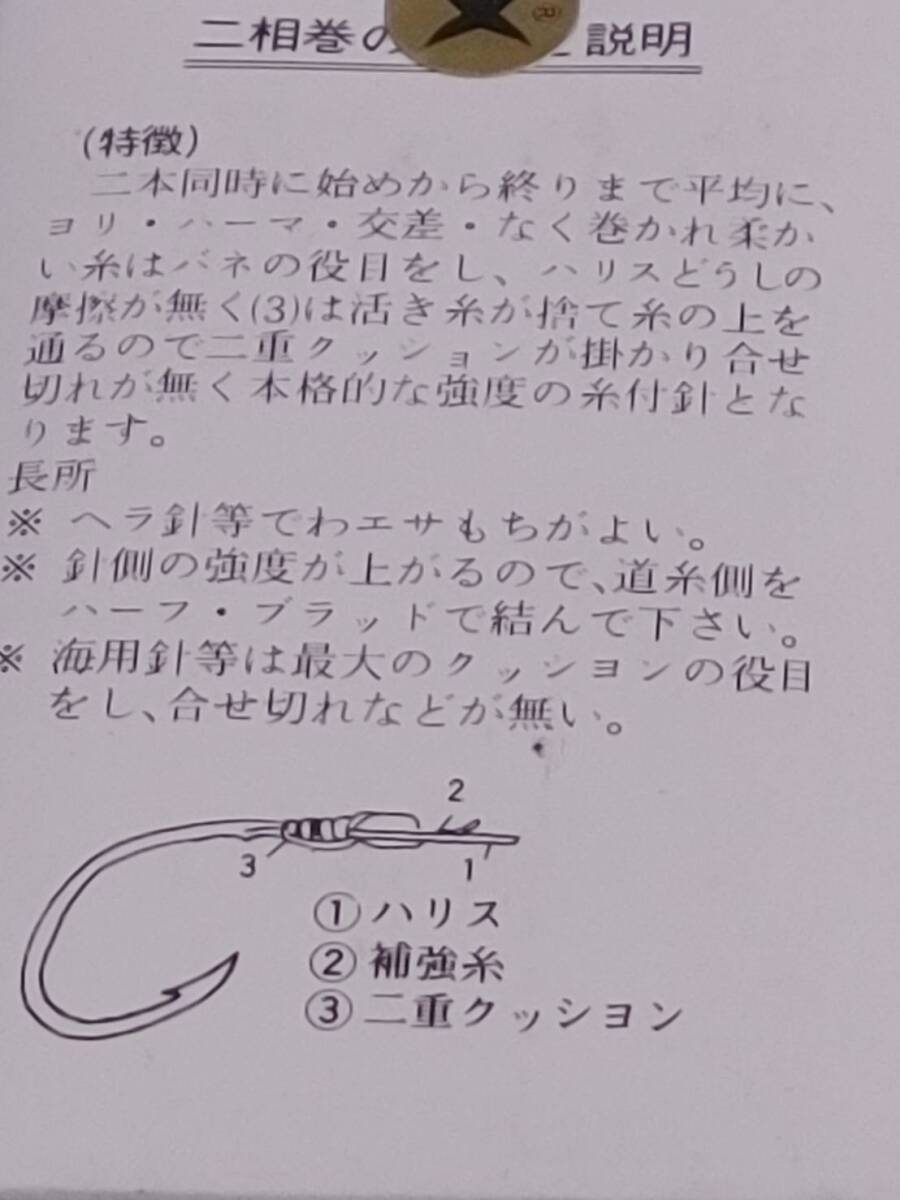 二相巻の 説明
®
(特徴)
二本同時に始めから終りまで平均に、
ヨリ・ハーマ・交差・なく巻かれ柔か
い糸はバネの役目をし、ハリスどうしの
摩擦が無く(3)は活き糸が捨て糸の上を
通るので二重クッションが掛かり合せ
切れが無く本格的な強度の糸付針とな
ります。
長所
※ ヘラ針等でわエサもちがよい。
※ 針側の強度が上がるので、道糸側を
ハーフ・ブラッドで結んで下さい。
※ 海用針等は最大のクッションの役目
をし、合せ切れなどが無い。
2
3
1
①ハリス
②補強糸
③二重クッション